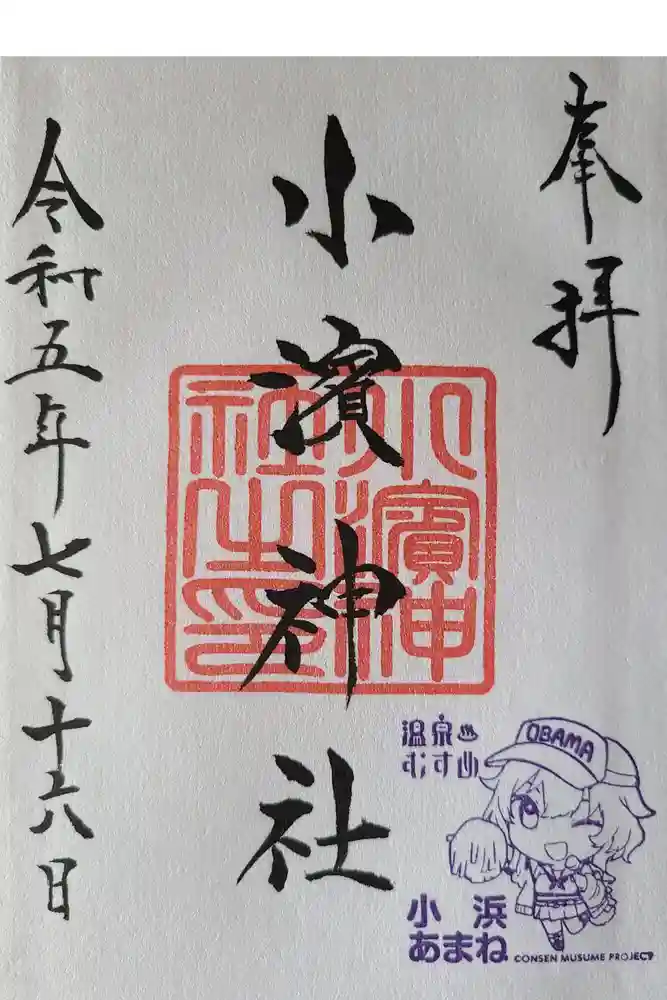 奉拝
小濱神社
小濱神社之印
令和五年七月十六日
温泉♨
むすめ
OBAMA
小浜
あまね
©ONSEN MUSUME PROJECT